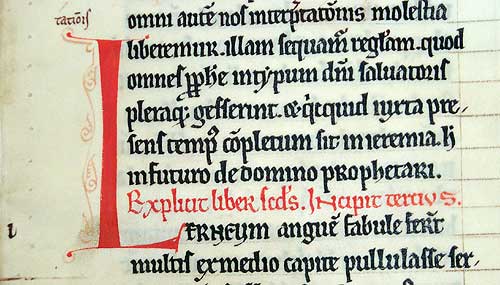 tatiōis
omni autē nos interp̄tationis molestia
liberemur. illam sequam̄ regl̄am. quod
omnes ꝓph̄e in typum dn̄i saluatoris
pleraq; gesserint. & qͥcquid iuxta pre-
sens temp⁹ cōpletum sit in ieremia. h̄
in futuro de domino prophetari.
Explicit liber scd̄s. Incipit tercius.
LERNEUM anguē fabule fer̄t
multis ex medio capite pullulasse ser-